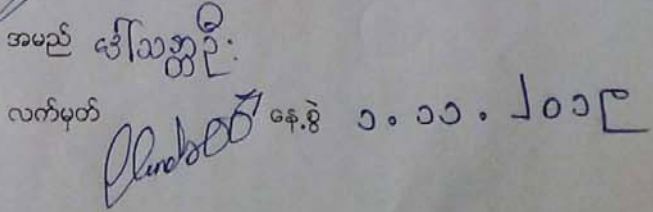 အမည် ဒေါ်သတ္တဦး
လက်မှတ် နေ့စွဲ ၁.၁၁.၂၀၁၉